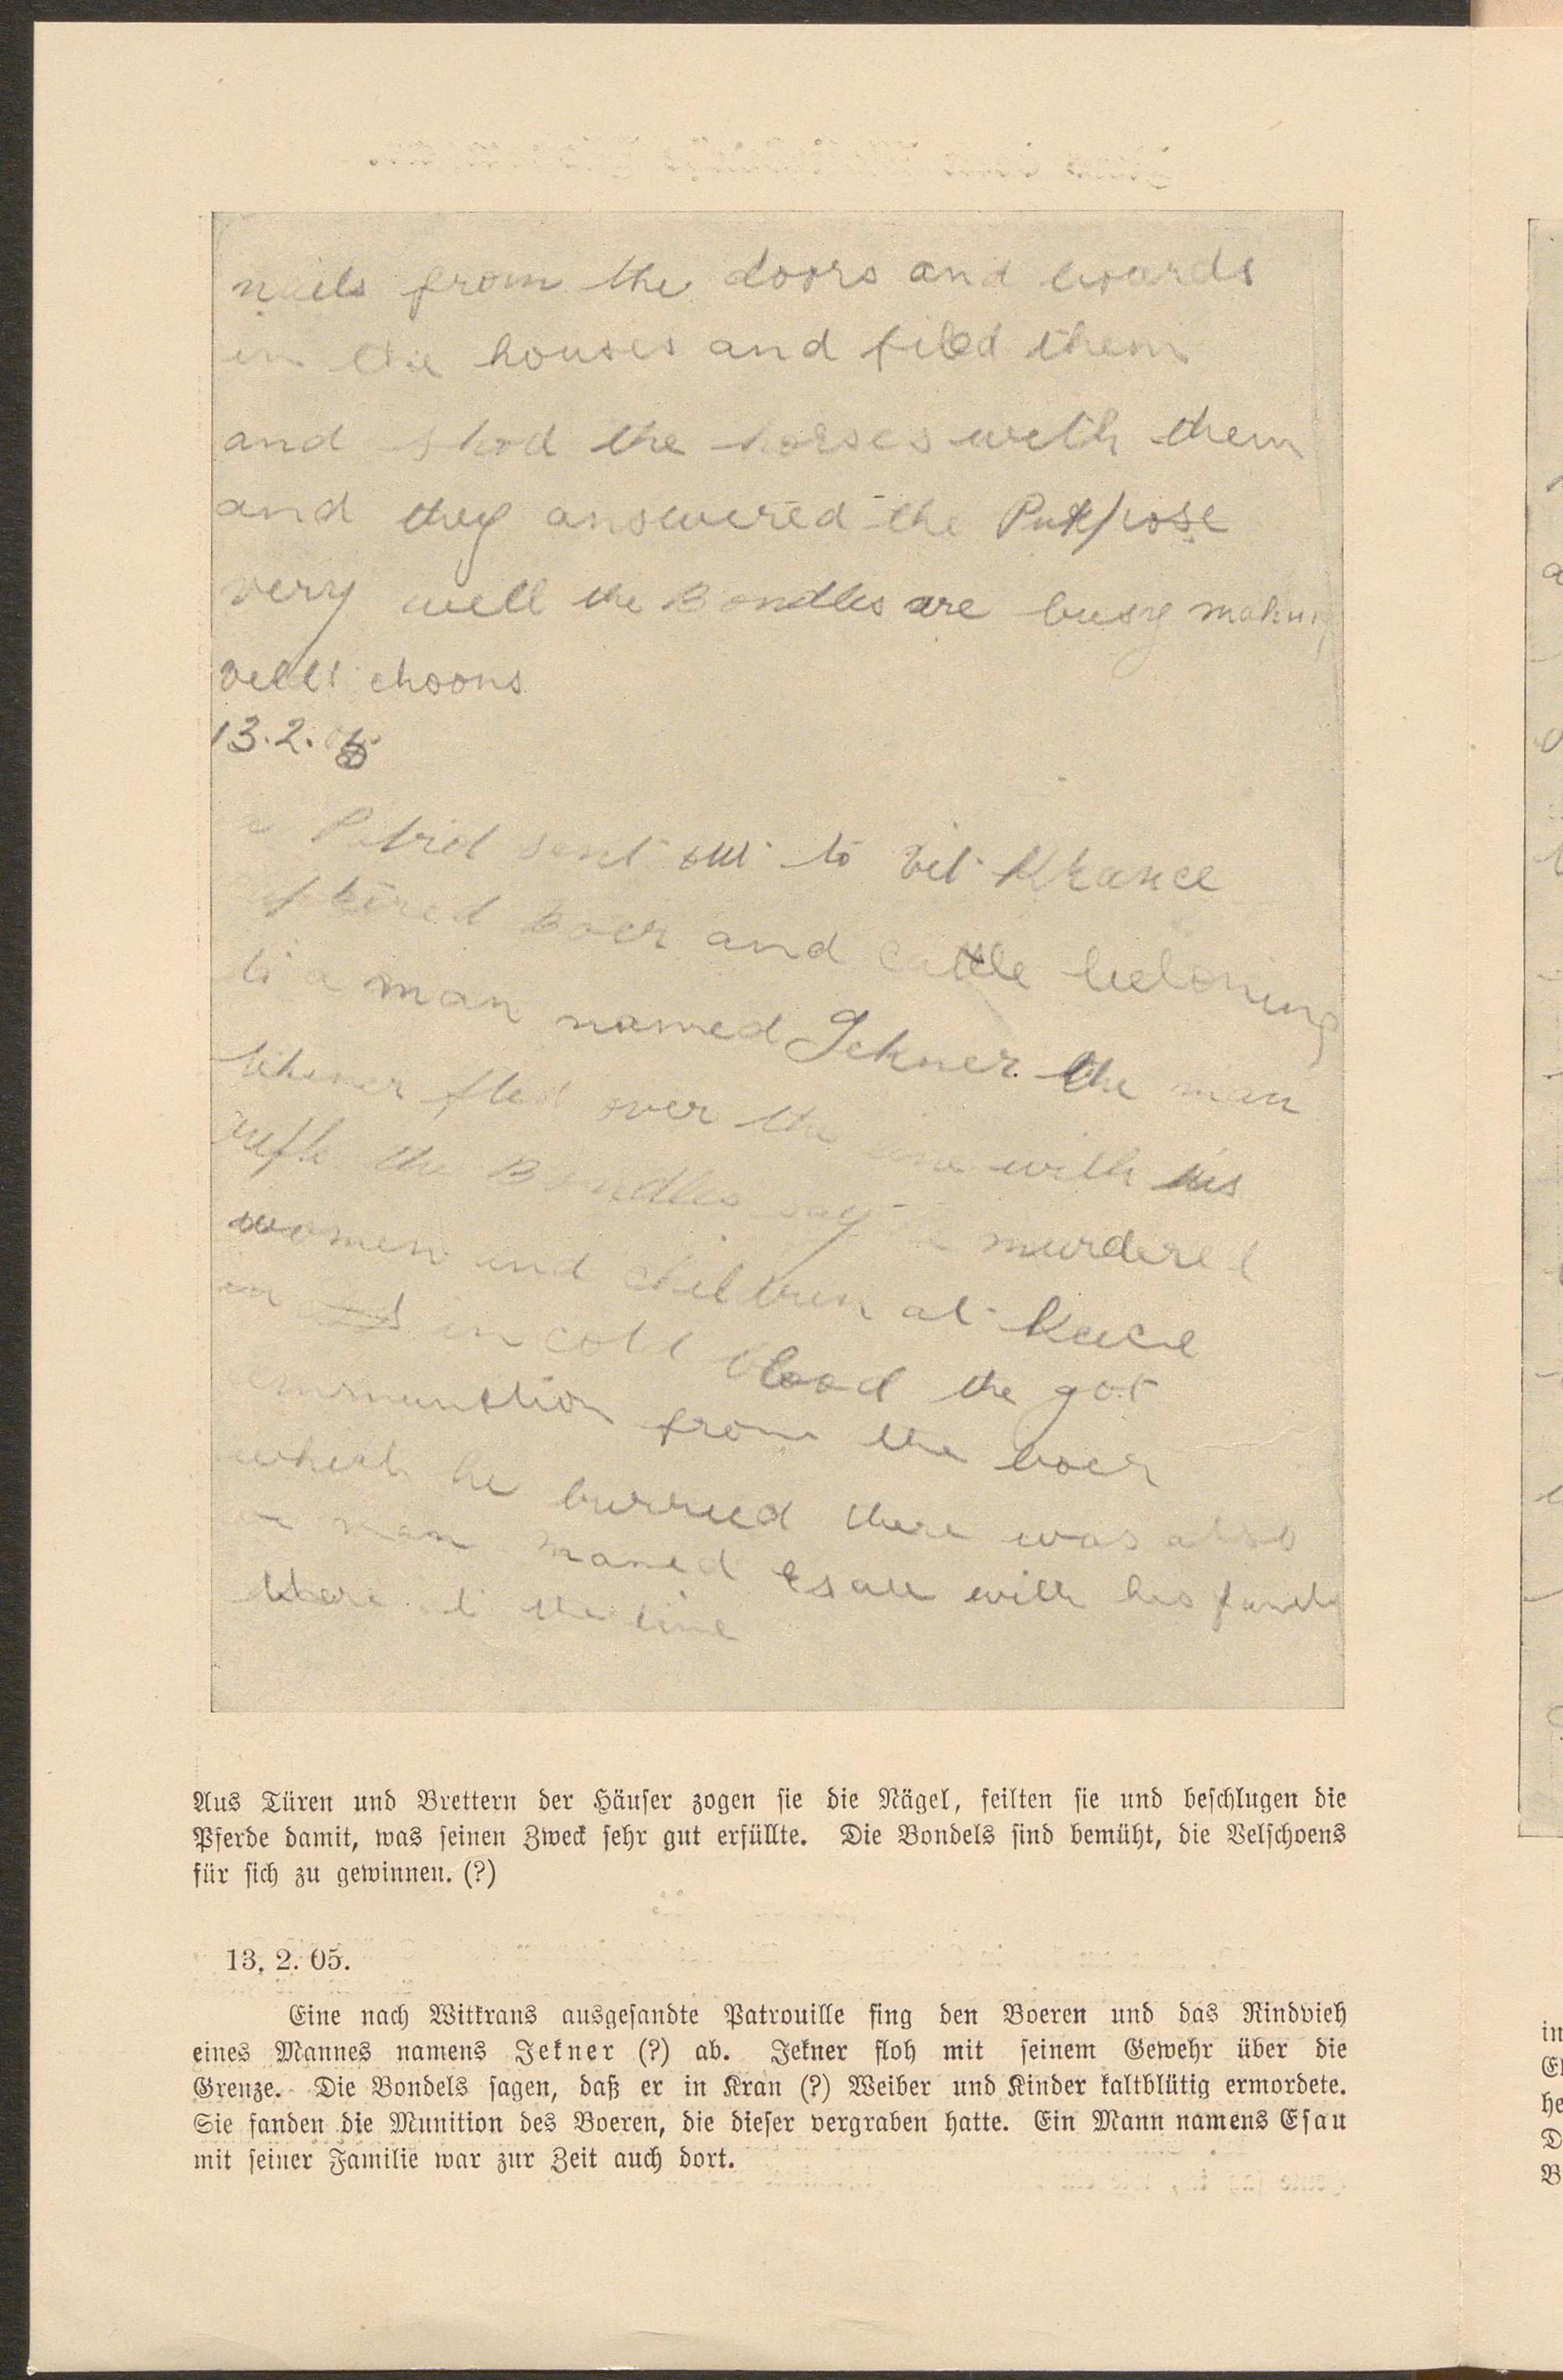 nails from the doors and boards
in the houses and filed them
and shod the horses with them
and they answered the Purpose
very well the Bondles are busy making
velt choons
13.2.05
a Patrol sent out to Vit Krance
captured Boer and Cattle beloning
to a man named Jekner. the man
fled over the line with his
rifle the Bondles say he murdered
women and children at
in in cold blood the got
ammunition from the boer
which he burried there was also
a man maned Esau with his family
there at the time
Aus Türen und Brettern der Häuser zogen sie die Nägel, feilten sie und beschlugen die
Pferde damit, was seinen Zweck sehr gut erfüllte. Die Bondels sind bemüht, die Velschoens
für sich zu gewinnen. (?)
13. 2. 05.
Eine nach Witkrans ausgesandte Patrouille fing den Boeren und das Rindvieh
eines Mannes namens Jekner (?) ab. Jekner floh mit seinem Gewehr über die
Grenze. Die Bondels sagen, daß er in Kran (?) Weiber und Kinder kaltblütig ermordete.
Sie fanden die Munition des Boeren, die dieser vergraben hatte. Ein Mann namens Esau
mit seiner Familie war zur Zeit auch dort.